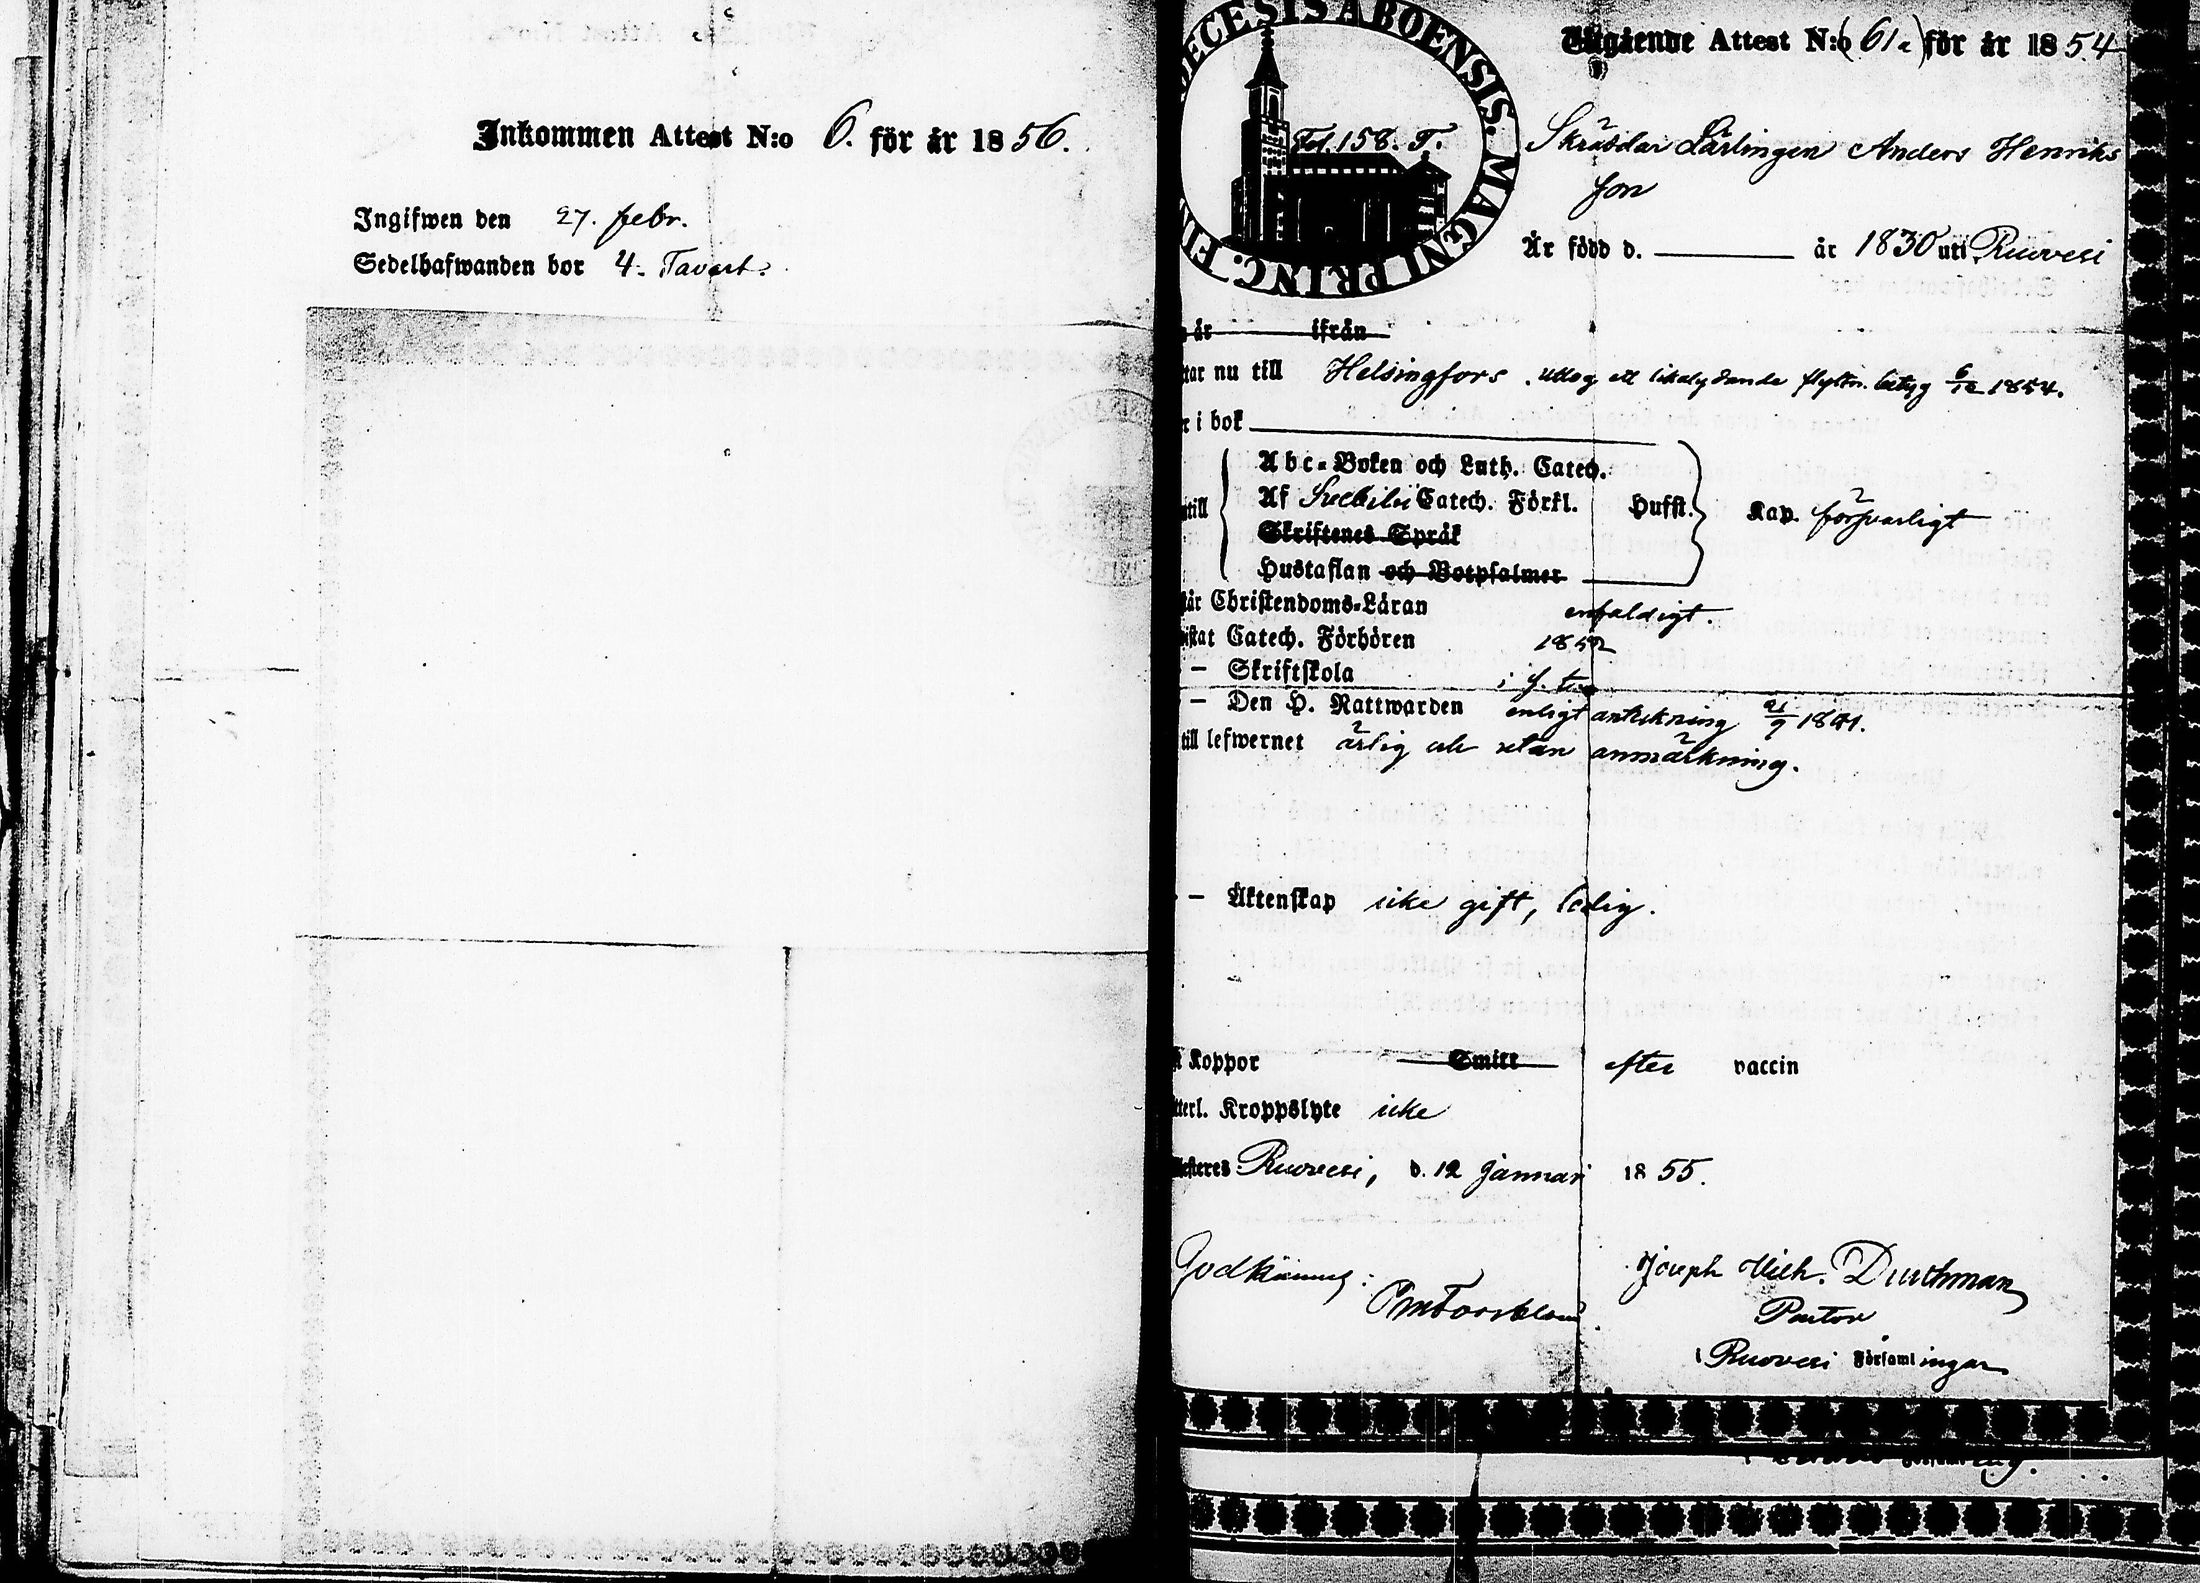 Inkommen Attest N:o 6. för år 1856.
Ingifwen den 27. febr.
Sedelhafwanden bor 4. Tavast.
DIECESIS ABOENSIS. MAGNI PRINC. FI
Fol. 158. T.
Utgående Attest N:o (61 a) för år 1854
Skräddar Lärlingen Anders Henriks
son
Är född d. år 1830 uti Ruovesi
år ifrån
tar nu till Helsingfors. uttog ett likalydande flyttn. betyg 6/12 1854.
r i bok
Abc-Boken och Luth. Catech.
till Af Svebilii Catech. Förkl. Hufst. Kap. försvarligt
Skriftenes Språk
Hustaflan och Botpsalmer
tår Christendoms-Läran enfaldigt.
istat Catech. Förhören 1852
– Skriftskola i s. t.
– Den H. Nattwarden enligt anteckning 21/9 1851.
till lefwernet ärlig och utan anmärkning.
– Äktenskap icke gift, ledig.
Koppor Smitt efter vaccin
tterl. Kroppslyte icke
testeres Ruovesi, d. 12 Januari 1855.
Godkännes:
Joseph Wilh. Durchman
Pastor
i Ruovesi Församlingar